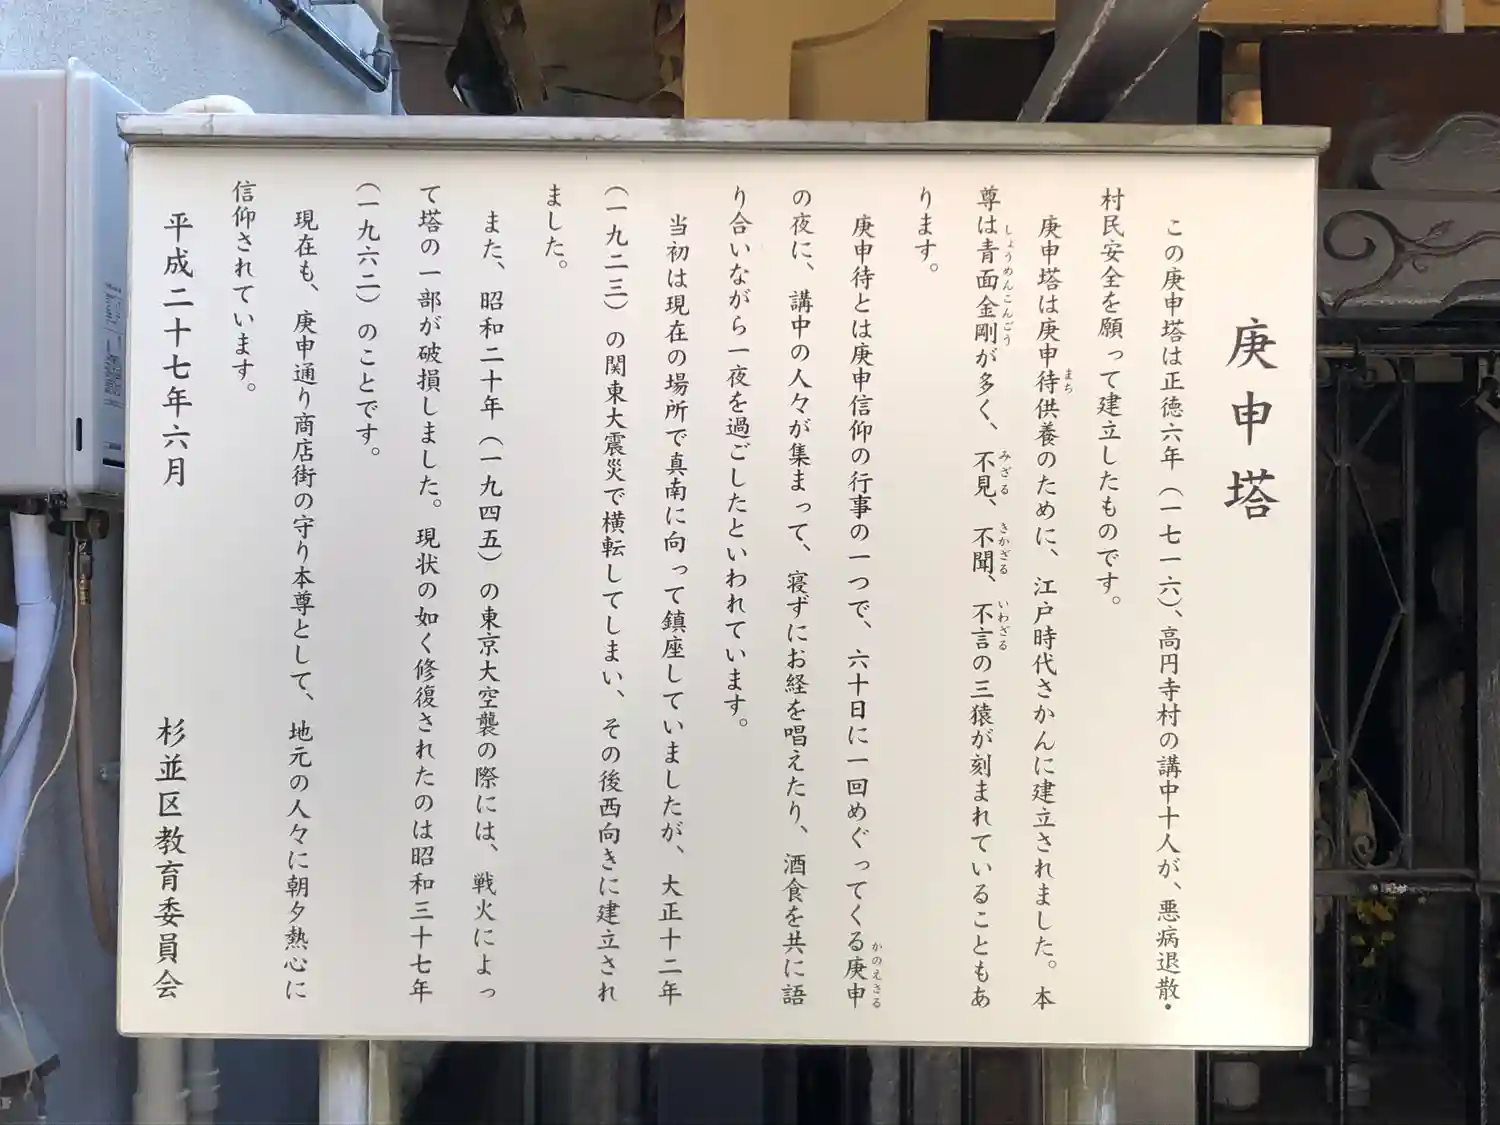 庚申塔
この庚申塔は正徳六年（一七一六）、高円寺村の講中十人が、悪病退散・
村民安全を願って建立したものです。
庚申塔は庚申待供養のために、江戸時代さかんに建立されました。本
まち
尊は青面金剛が多く、不見、不聞、不言の三猿が刻まれていることもあ
しょうめんこんごう
みざる
きかざる
いわざる
ります。
庚申待とは庚申信仰の行事の一つで、六十日に一回めぐってくる庚申
かのえさる
の夜に、講中の人々が集まって、寝ずにお経を唱えたり、酒食を共に語
り合いながら一夜を過ごしたといわれています。
当初は現在の場所で真南に向って鎮座していましたが、大正十二年
（一九二三）の関東大震災で横転してしまい、その後西向きに建立され
ました。
また、昭和二十年（一九四五）の東京大空襲の際には、戦火によっ
て塔の一部が破損しました。現状の如く修復されたのは昭和三十七年
（一九六二）のことです。
現在も、庚申通り商店街の守り本尊として、地元の人々に朝夕熱心に
信仰されています。
平成二十七年六月
杉並区教育委員会